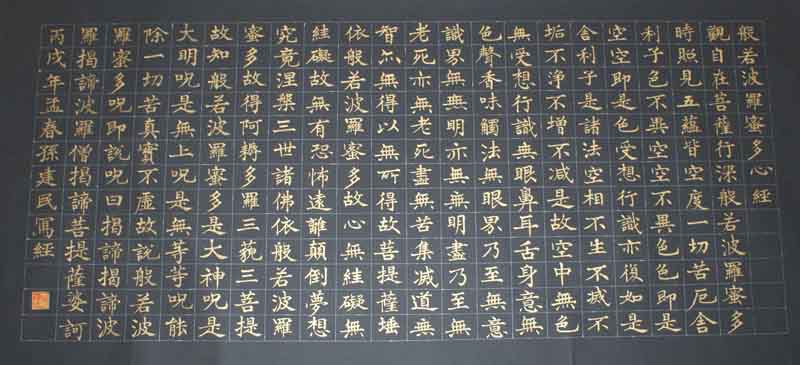 般若波羅蜜多心經
觀自在菩薩行深般若波羅蜜多
時照見五蘊皆空度一切苦厄舍
利子色不異空空不異色色即是
空空即是色受想行識亦復如是
舍利子是諸法空相不生不滅不
垢不淨不增不減是故空中無色
無受想行識無眼鼻耳舌身意無
色聲香味觸法無眼界乃至無意
識界無無明亦無無明盡乃至無
老死亦無老死盡無苦集滅道無
智亦無得以無所得故菩提薩埵
依般若波羅蜜多故心無絓礙無
絓礙故無有恐怖遠離顛倒夢想
究竟涅槃三世諸佛依般若波羅
蜜多故得阿耨多羅三藐三菩提
故知般若波羅蜜多是大神呪是
大明呪是無上呪是無等等呪能
除一切苦真實不虛故說般若波
羅蜜多呪即說呪曰揭諦揭諦波
羅揭諦波羅僧揭諦菩提薩婆訶
丙戌年孟春孫建民寫經